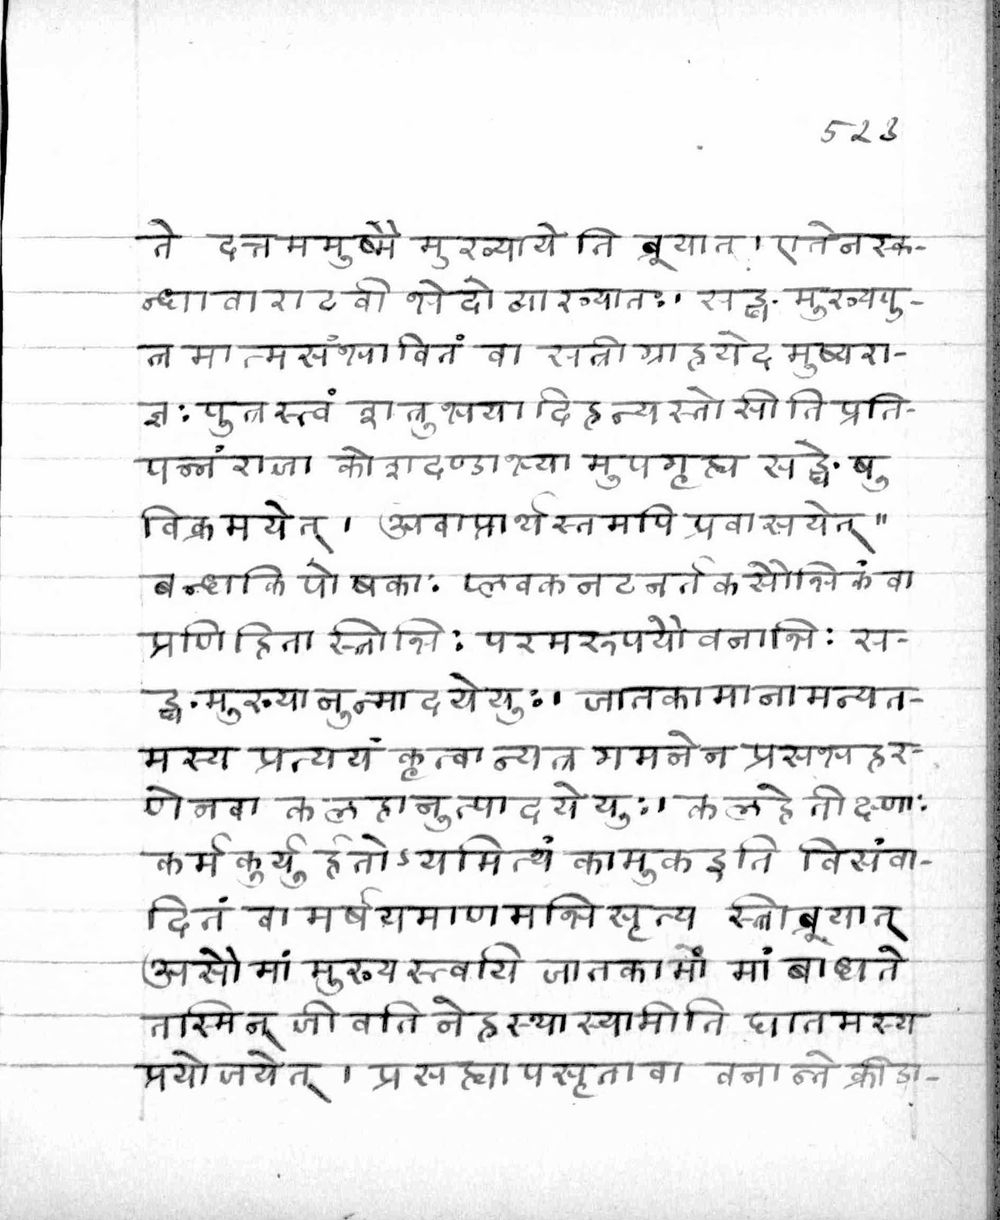 523
ते दत्तममुष्मै मुख्यायेति ब्रूयात्। एतेन स्क-
न्धावाराटवीभेदो व्याख्यातः। सङ्घमुख्यपु-
त्रमात्मसंभावितं वा सत्री ग्राहयेदमुष्य रा-
ज्ञः पुत्रस्त्वं शत्रुभयादिह न्यस्तोसीति प्रति-
पन्नं राजा कोशदण्डाभ्यामुपगृह्य सङ्घेषु
विक्रमयेत्। अवाप्तार्थस्तमपि प्रवासयेत्॥
बन्धकिपोषकाः प्लवकनटनर्तकसौभिकं वा
प्रणिहितास्त्रीभिः परमरूपयौवनाभिः स-
ङ्घमुख्यानुन्मादयेयुः। जातकामानामन्यत-
मस्य प्रत्ययं कृत्वान्यत्र गमनेन प्रसभहर-
णेन वा कलहानुत्पादयेयुः। कलहे तीक्ष्णाः
कर्म कुर्युर्हतोऽयमित्थं कामुक इति विसंवा-
दितं वा मर्षयमाणमभिसृत्य स्त्री ब्रूयात्
असौ मां मुख्यस्त्वयि जातकामों मां बाधते
तस्मिन् जीवति नेह स्थास्यामीति घातमस्य
प्रयोजयेत्। प्रसह्यापसृता वा वनान्ते क्रीडा-